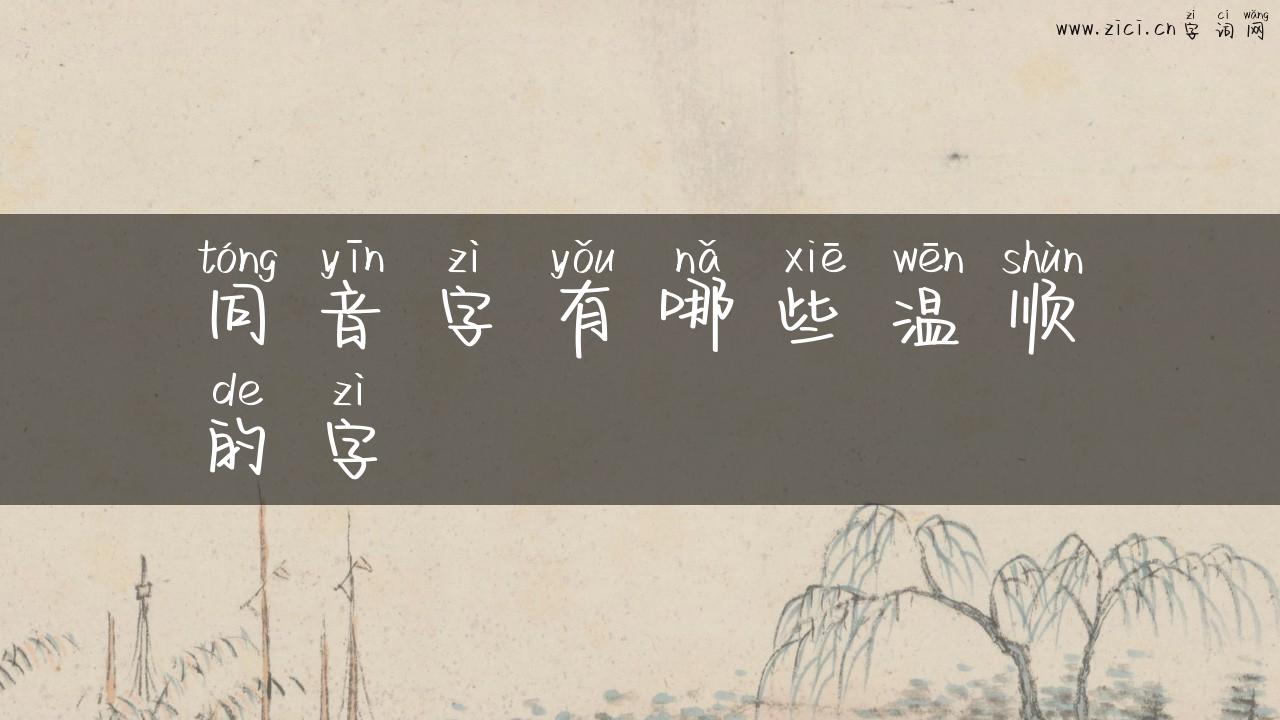 zì cí wǎng
www.zici.cn 字 词 网
tóng yīn zì yǒu nǎ xiē wēn shùn
同 音 字 有 哪 些 温 顺
de zì
的 字